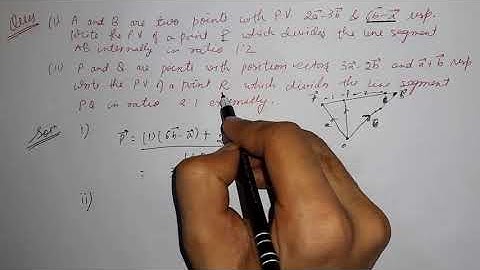 Ques (i) A and B are two points with P.V. 2a⃗-3b⃗ & 6b⃗-a⃗ resp.
Write the P.V of a point P which divides the line segment
AB internally in ratio 1:2
(ii) P and Q are points with position vectors 3a⃗-2b⃗ and a⃗+b⃗ resp
write the P.V of a point R which divides the line segment
PQ in ratio 2:1 externally.
Sol i) p⃗ = (1)(6b⃗-a⃗) +
=
ii)